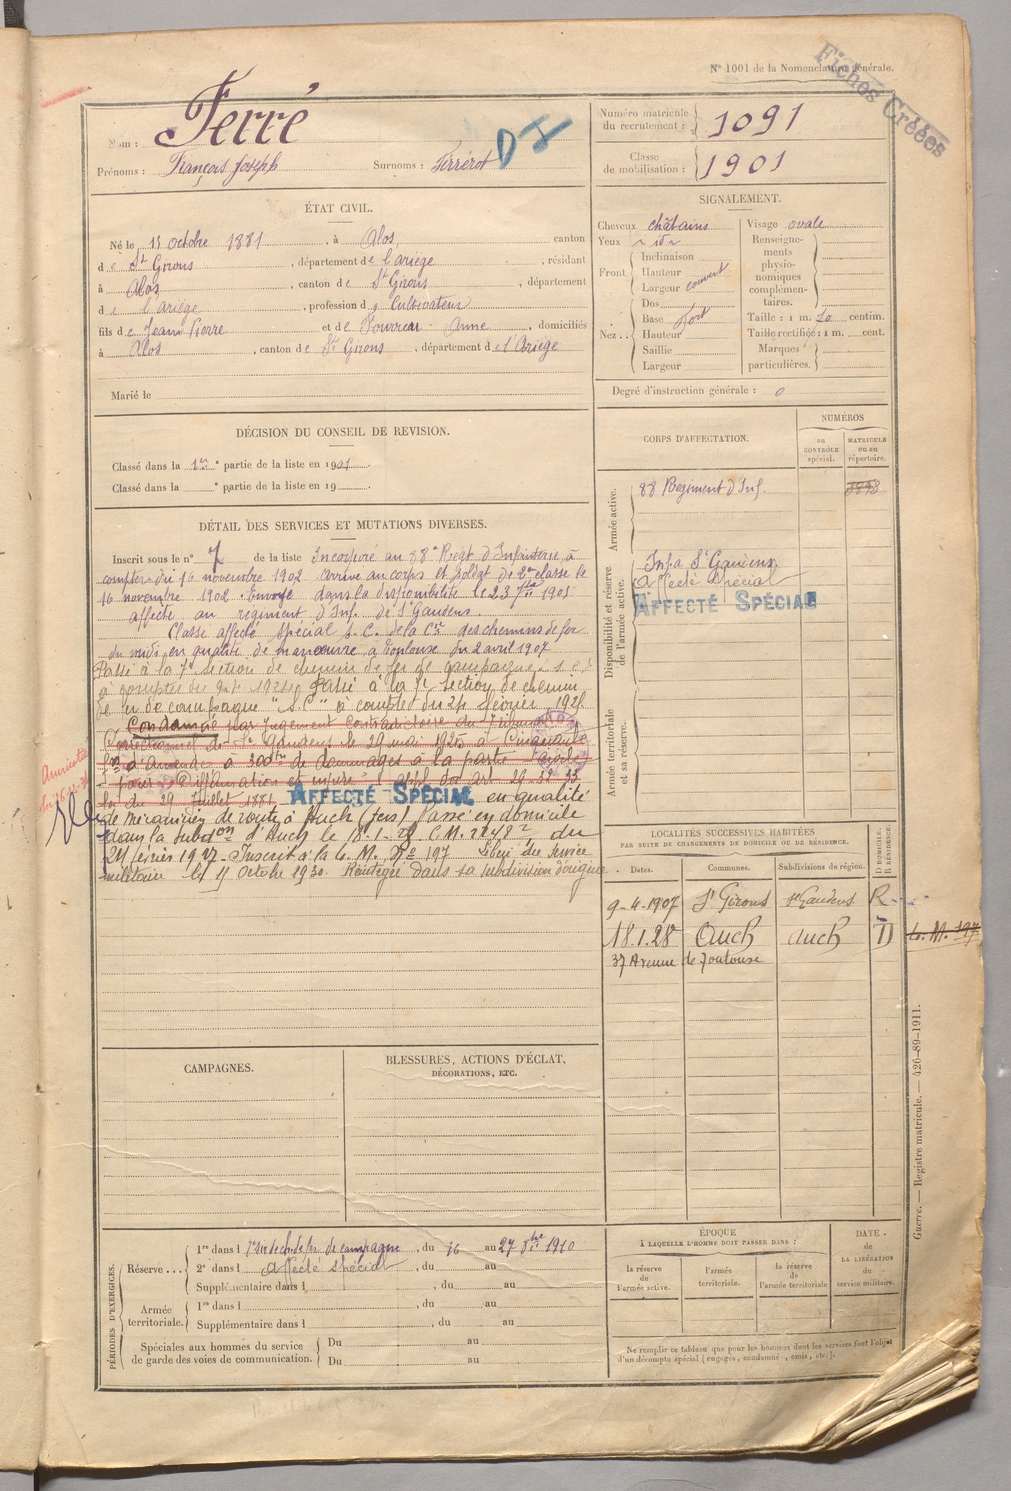 N° 1001 de la Nomenclature générale.
Fiches Créées
Nom : Ferré
Prénoms : François Joseph Surnoms : Ferrérot
Numéro matricule du recrutement : 1091
Classe de mobilisation : 1901
ÉTAT CIVIL.
Né le 15 octobre 1881, à Alos, canton
de St Girons, département de l'ariège, résidant
à Alos, canton de St Girons, département
de l'ariège, profession de Cultivateur
fils de Jean Pierre et de Anne, domiciliés
à Alos, canton de St Girons, département de l'Ariège
Marié le
SIGNALEMENT.
Cheveux châtains
Yeux
Front Inclinaison
Hauteur
Largeur couvert
Nez.. Dos
Base fort
Hauteur
Saillie
Largeur
Visage ovale
Renseignements physionomiques complémentaires.
Taille : 1 m. 70 centim.
Taille rectifiée : 1 m. cent.
Marques particulières.
Degré d'instruction générale : 0
DÉCISION DU CONSEIL DE REVISION.
Classé dans la 1re partie de la liste en 1901
Classé dans la ° partie de la liste en 19
CORPS D'AFFECTATION.
NUMÉROS
au CONTRÔLE spécial.
MATRICULE ou au répertoire.
Armée active.
88 Régiment d'Inf.
Disponibilité et réserve de l'armée active.
Infie St Gaudens
Affecté spécial
AFFECTÉ SPÉCIAL
Armée territoriale et sa réserve.
DÉTAIL DES SERVICES ET MUTATIONS DIVERSES.
Inscrit sous le n° 7 de la liste Incorporé au 88e Régt d'Infanterie à
compter du 16 novembre 1902 arrivé au corps et soldat de 2e classe le
16 novembre 1902. Envoyé dans la disponibilité le 23 7bre 1905
affecté au régiment d'Inf. de St Gaudens.
Classé affecté spécial S.C. de la Cie des chemins de fer
du midi en qualité de manœuvre à Toulouse du 2 avril 1907
Passé à la 7e section de chemin de fer de campagne
à compter du Passé à la 7e section de chemin
de fer de campagne "S.C" à compter du 24 février 192
Condamné par jugement contradictoire du Tribunal
Correctionnel de St Gaudens le 29 mai 1925 à Cinquante
d'amende à 300 de dommages à la partie civile
pour Diffamation et injure appl. des art 29-32-33
loi du 29 Juillet 1881 AFFECTÉ SPÉCIAL en qualité
de mécanicien de route à Auch (Gers) Passé en domicile
dans la subdon d'Auch le 18-1-28 C.M. 2248 du
24 février 1927 - Inscrit à la C. M. N° 197 Libéré du service
militaire le 15 octobre 1930. Réintégré dans sa subdivision d'origine.
Amnistié
LOCALITÉS SUCCESSIVES HABITÉES
PAR SUITE DE CHANGEMENTS DE DOMICILE OU DE RÉSIDENCE.
Dates. Communes. Subdivisions de région. D DOMICILE. R RÉSIDENCE.
9-4-1907 St Girons St Gaudens R
18.1.28 Auch Auch D
37 Avenue de Toulouse
C. M. 197
CAMPAGNES.
BLESSURES, ACTIONS D'ÉCLAT,
DÉCORATIONS, ETC.
Guerre. — Registre matricule. — 426-89-1911.
PÉRIODES D'EXERCICES.
Réserve.... 1re dans l 7e Son de ch. de fer de campagne, du 16 au 27 8bre 1910
2e dans l Affecté spécial, du au
Supplémentaire dans l, du au
Armée territoriale. 1re dans l, du au
Supplémentaire dans l, du au
Spéciales aux hommes du service de garde des voies de communication. Du au
Du au
ÉPOQUE
À LAQUELLE L'HOMME DOIT PASSER DANS :
la réserve de l'armée active.
l'armée territoriale.
la réserve de l'armée territoriale
DATE de la LIBÉRATION du service militaire.
Ne remplir ce tableau que pour les hommes dont les services font l'objet
d'un décompte spécial (engagés, condamné, omis, etc.).